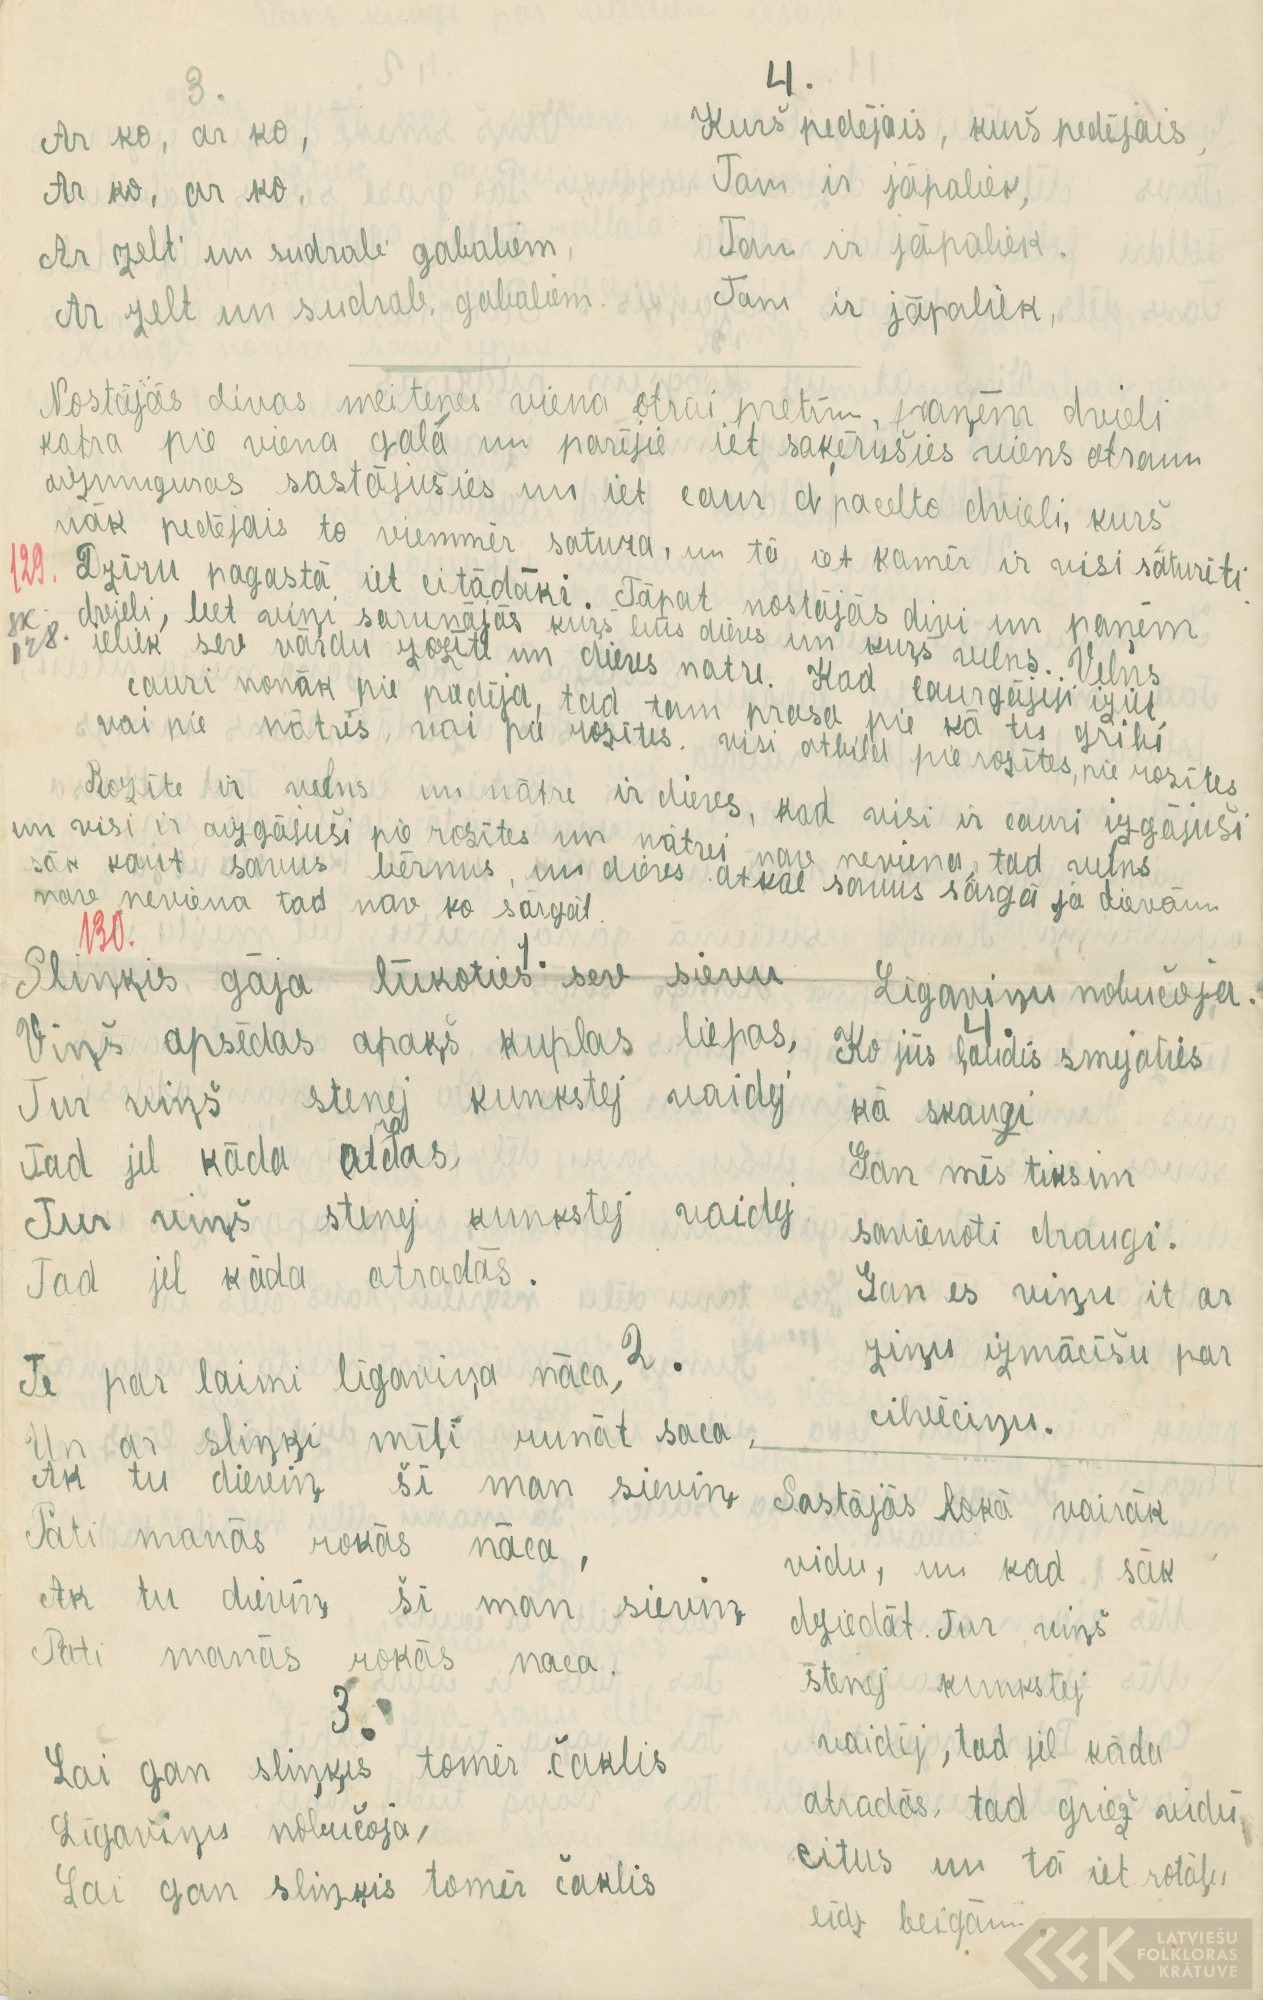 3.
Ar ko, ar ko,
Ar ko, ar ko,
Ar zelt' un sudrab' gabaliem,
Ar zelt un sudrab, gabaliem.
4.
Kurš pedējais, kurš pedējais,
Tam ir jāpaliek,
Tam ir jāpaliek.
Tam ir jāpaliek,
Nostājās divas meitenes viena otrai pretīm, paņēm dvieli
katra pie viena galā un parējie iet saķērušies viens otram
aizmuguras sastājušies un iet caur d pacelto dvieli, kurš
nāk pedējais to vienmēr satura, un tā iet kamēr ir visi sāturīti.
129. Dzīru pagastā iet citādāki. Tāpat nostājās divi un paņēm
SK 128. dvieli, bet viņi sarunājās kurš būs dievs un kurš velns. Velns
ieliek sev vārdu rozīte un dievs natre. Kad caurgājēji iziet
cauri nonāk pie pedēja, tad tam prasa pie kā tu gribi
vai pie nātrēs, vai pie rozītes. visi atbild pie rozītes, pie rozītes
Rozīte ir velns un nātre ir dievs, kad visi ir cauri izgājuši
un visi ir aizgājuši pie rosītes un nātrei nav neviena, tad velns
sāk kaut savus bērnus, un dievs atkal savus sārgā ja dievam
nav neviena tad nav ko sārgāt.
130.
1.
Sliņķis gāja lūkoties sev sievu
Viņš apsēdas apakš kuplas liepas,
Tur viņš stenej kunkstej vaidej
Tad jel kāda atradas,
Tur viņš stenej kunkstej vaidej
Tad jel kāda atradās.
2.
Te par laimi līgaviņa nāca,
Un ar sliņķi mīļi runāt saca,
Ak tu dieviņ šī man sieviņ
Pati manās rokās nāca,
Ak tu dieviņ šī man sieviņ
Pati manās rokās naca.
3.
Lai gan sliņķis tomēr čaklis
Līgaviņu nobučoja,
Lai gan sliņķis tomēr čaklis
Līgaviņu nobučoja.
4.
Ko jūs ļaudis smejaties
kā skaugi
Gan mēs tiksim
savienoti draugi.
Gan es viņu it ar
ziņu izmācīšu par
cilvēciņu.
Sastājās lokā vairāk
vidu, un kad sāk
dziedāt. Tur viņš
stenej kunkstej
vaidēj, tad jel kāda
atradās, tad griež vidū
citus un tā iet rotāļu
līdz beigām.
LATVIEŠU
FOLKLORAS
KRĀTUVE